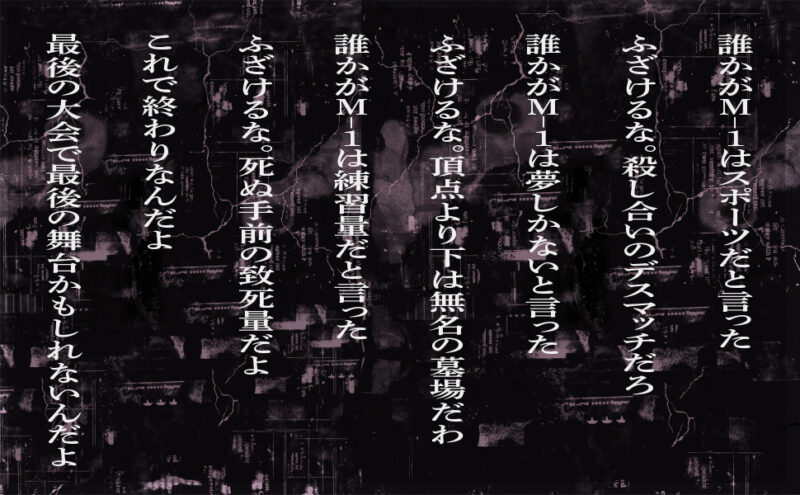 誰かがM-1はスポーツだと言った
ふざけるな。殺し合いのデスマッチだろ
誰かがM-1は夢しかないと言った
ふざけるな。頂点より下は無名の墓場だわ
誰かがM-1は練習量だと言った
ふざけるな。死ぬ手前の致死量だよ
これで終わりなんだよ
最後の大会で最後の舞台かもしれないんだよ